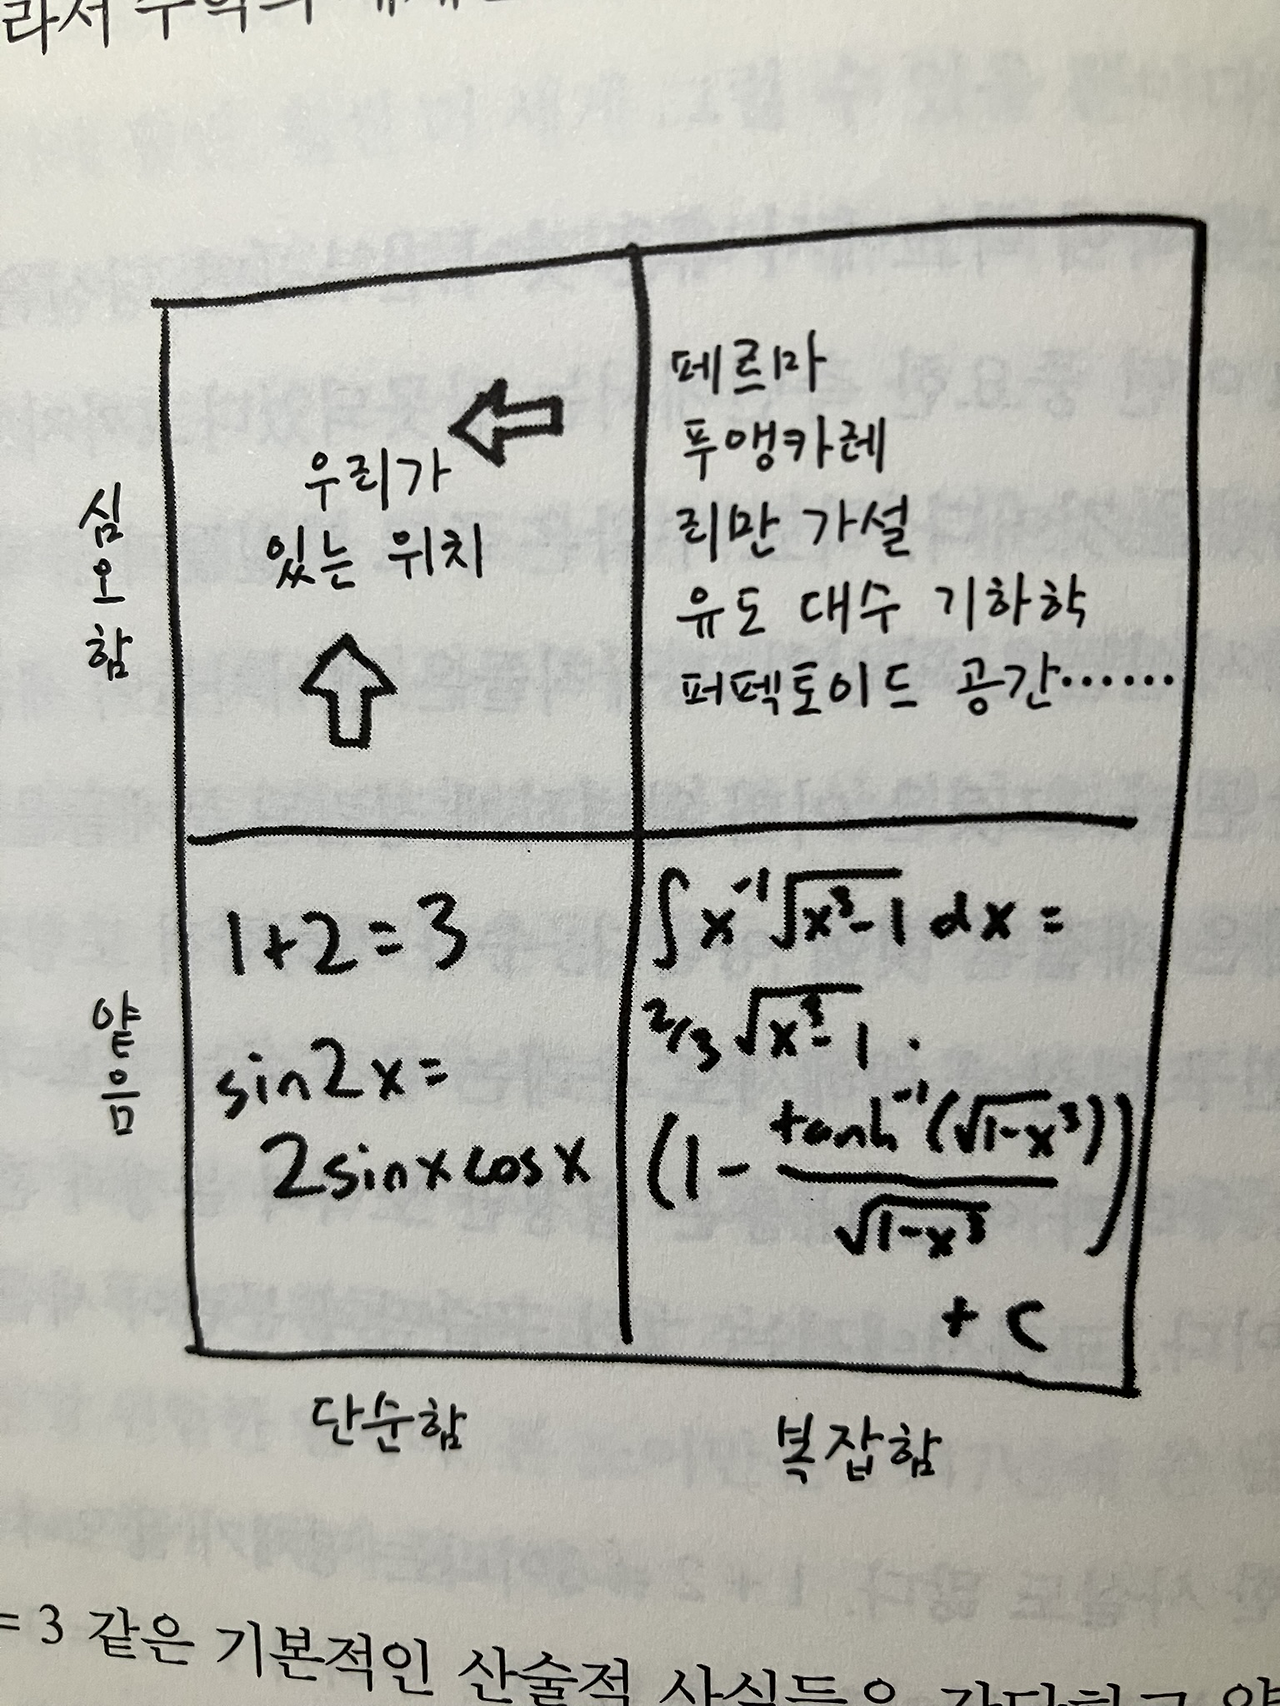 우리가
있는 위치
페르마
푸앵카레
리만 가설
유도 대수 기하학
퍼펙토이드 공간……
심오함
1+2=3
sin2x=
2sinxcosx
∫x⁻¹√x³-1 dx =
2/3 √x³-1 ·
(1- tanh⁻¹(√1-x³)
√1-x³)
+ C
얕음
단순함
복잡함
= 3 같은 기본적인 산술적 사실들은 간단하고